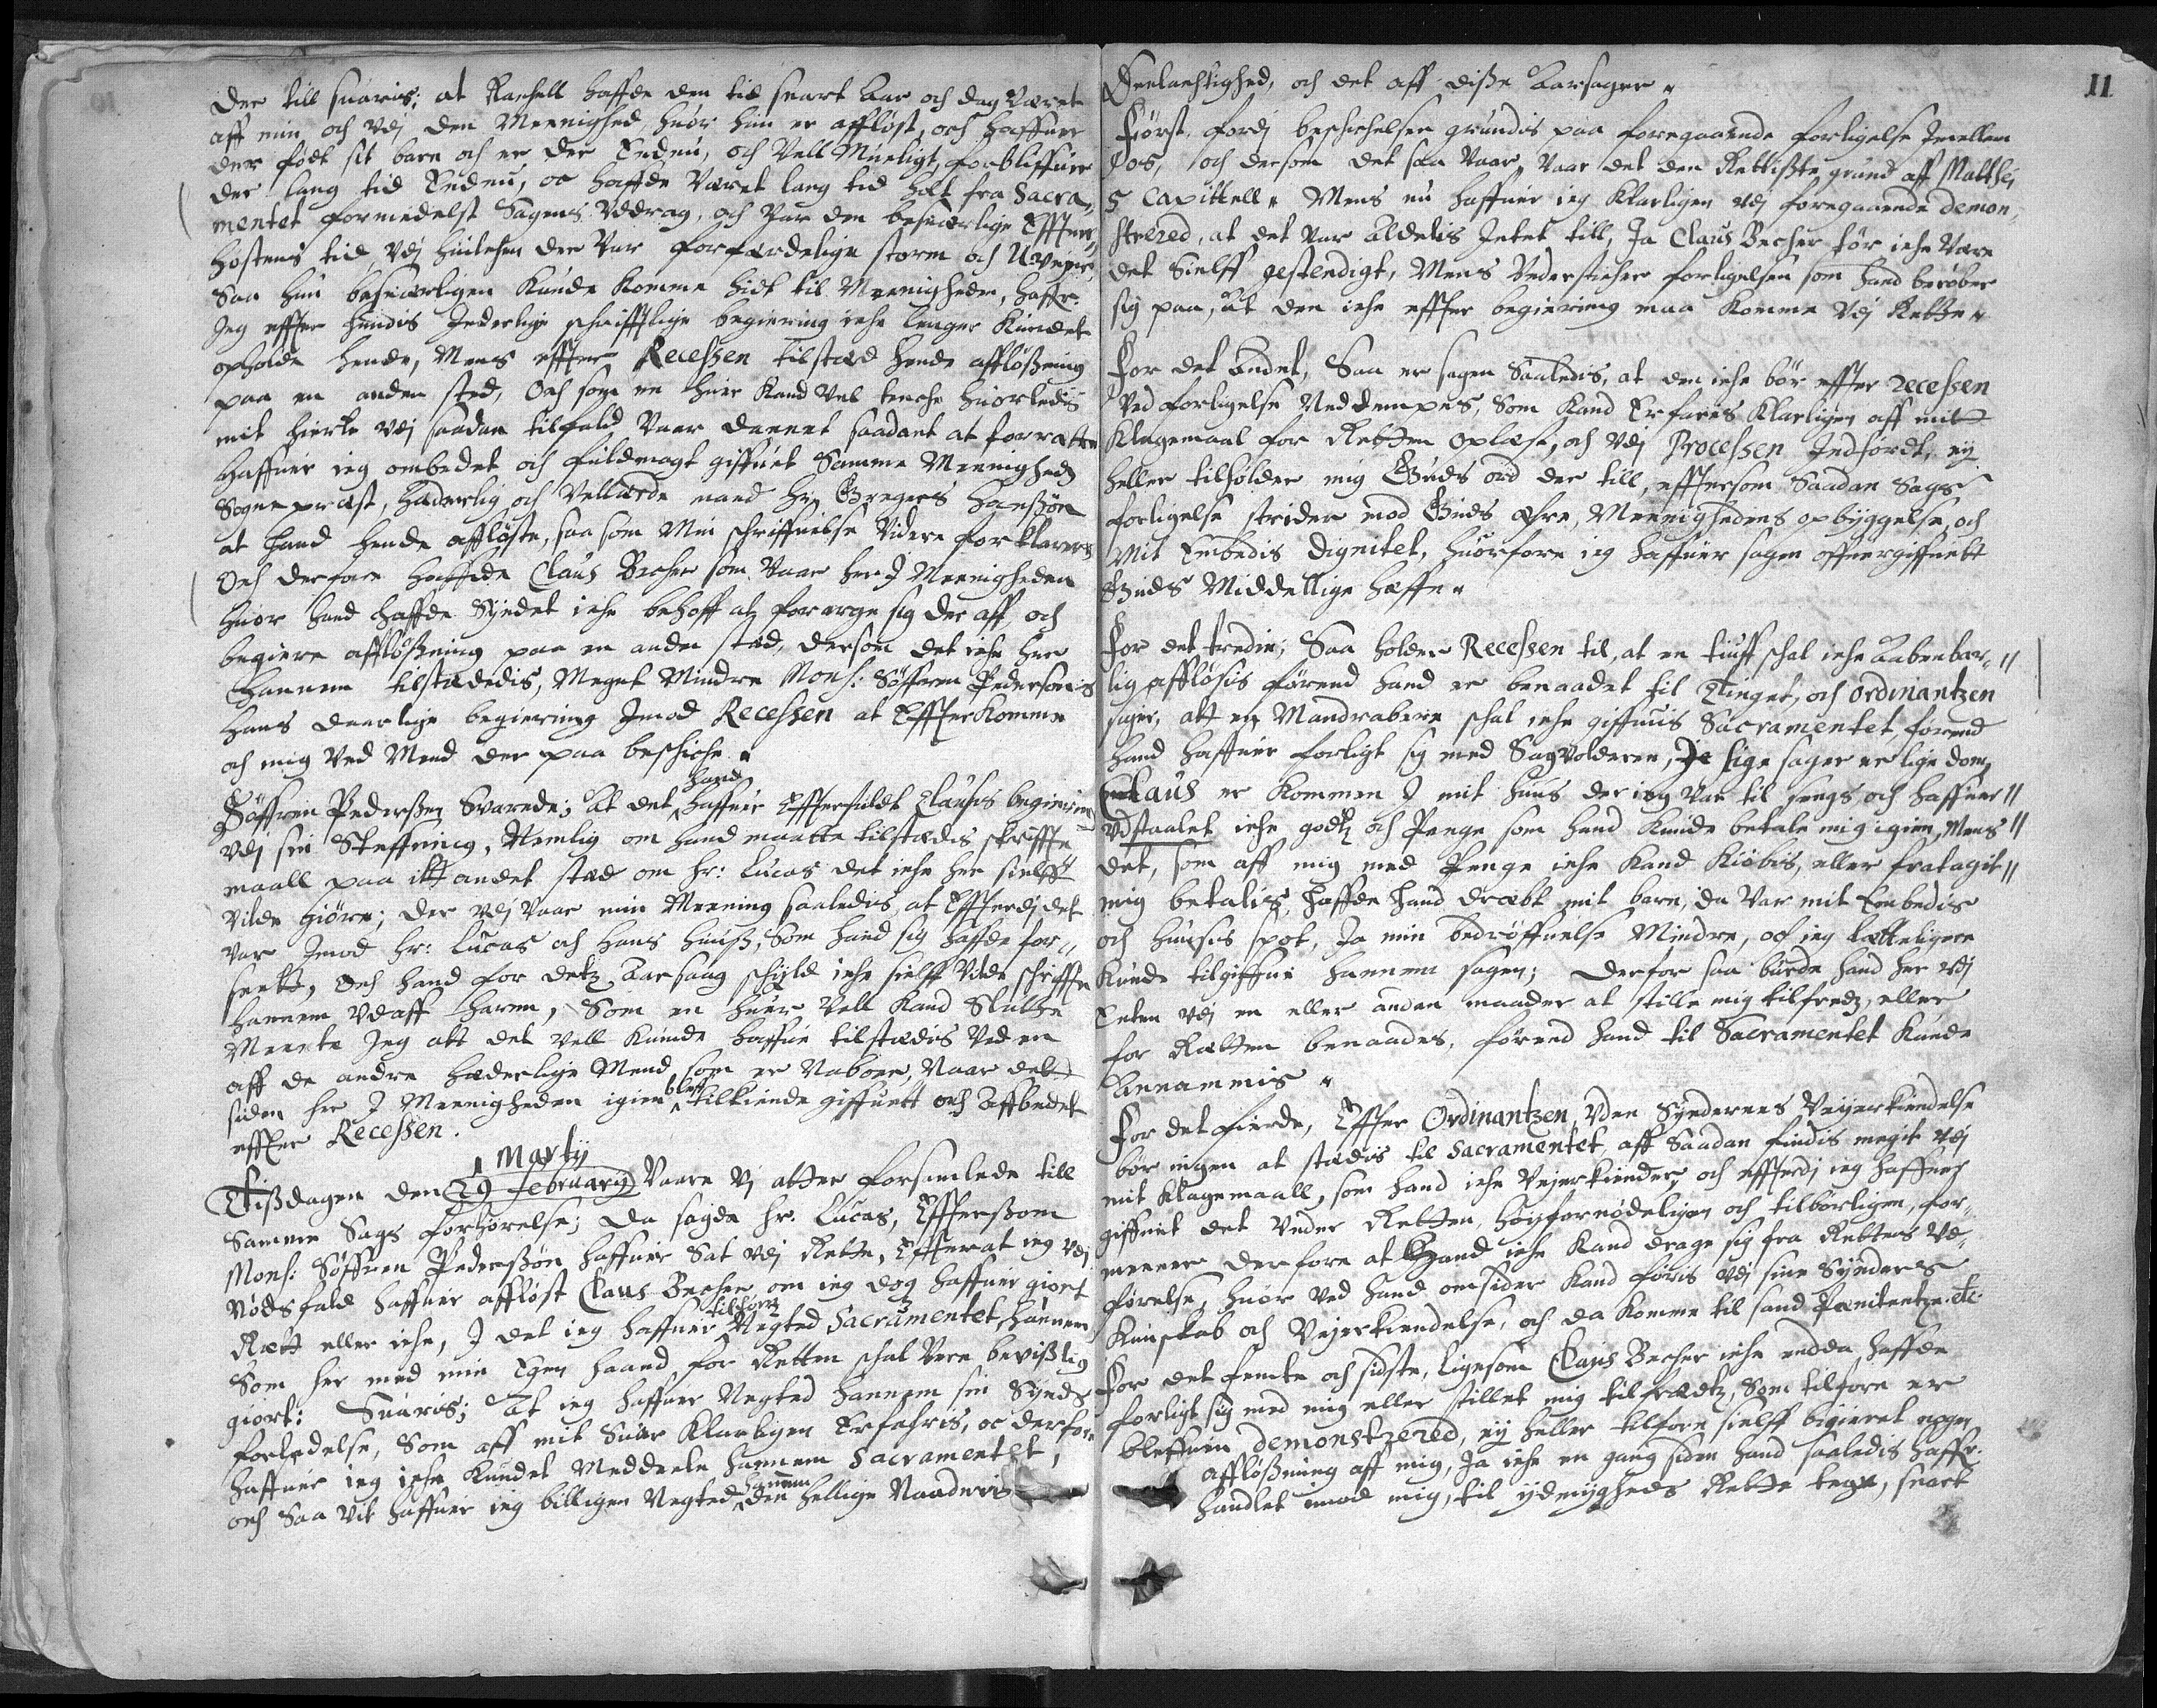 Der till suaris; at Rachell haffde den tid snart Aar och dag Været
aff min, och vdj den Meenighed, huor hun er affløst, och haffuer
der født sit barn och er der Endnu, och Vell Mueligt, forbliffuer
der lang tid Endnu, oc haffde Været lang tid holt fra Sacra-
mentet formedelst Sagens Vddrag, och Var den besuærlige Effter-
høstens tid, vdj huilchen der Var forfærdelige storm och Uveyr,
Saa hun besuærligen Kunde Komme hid til Meenigheden, haffr.
Jeg effter hendis Inderlige schrifftlige begiering iche lenger Kundet
opholde hende, Mens effter Recessen tilstæd hende affløssning
paa en anden sted, Och som en huer Kand Vel tenche huorledis
mit hierte vdj saadan tilfald Vaar dannet saadant at forrætte
Haffuer ieg ombedet och fuldmagt giffuet Samme Meenigheds
Sogneprest, Hæderlig och Vellærde mand Hr. Gregers Hanssøn
at hand hende affløste, saa som Min schriffuelse Videre forklarer
Och derfore haffde Claus Becher som Vaar her I Meenigheden
huor hand haffde Syndet iche behoff at forarge sig der aff, och
begiere affløssning paa en anden stæd, dersom det iche her
Hannem tilstædedis, Meget Mindre Mons: Søffren Pedersøns
Hans daarlige begiering Imod Recessen at EffterKomme
och mig Ved Mend der paa beschiche.
Søffren Pederssen Svarede; At det hand haffuer Effterfuldt Clausis begiering
vdj sin Steffning, Nemlig om hand maatte tilstædis skriffte
maall paa itt andet stæd om hr: Lucas det iche her sielff
vilde giøre; der vdj Vaar min Meening saaledis, at Effterdj det
var Imod hr: Lucas och Hans Huuss, Som hand sig haffde for-
seett, Och hand for detz Aarsaag schyld iche sielff Vilde schriffte
hannem vdaff harm, Som en huer Vell Kand Slutte
Meente Jeg att det vell kunde haffue tilstædis Ved en
aff de andre Hæderlige Mend som er Naboer, Naar det
siden her I Meenigheden igien bleff tilkiende giffuett och Affbedet
effter Recessen.
1 Martij
Tissdagen den 29 February Vaare Vj atter forsamlede till
Samme Sags forhørelse; Da sagde hr. Lucas, Effterssom
Mons: Søffren Pederssøn haffuer Sat vdj Rette, Effterat ieg vdj
Nødsfald haffuer affløst Claus Becher, om ieg dog haffuer giort
Rætt eller iche, I det ieg haffuer tilforn Negted Sacramentet, hannem
Som her med min Egen haand for Retten schal Vere bevisslig
giort: Suaris; At ieg haffuer Negted hannem sin Synds
forladelse, Som aff mit Suar Klarligen Erfahris, oc derfore
haffuer ieg iche Kundet Meddeele hannem Sacramentet,
och Saa vit haffuer ieg billigen Negted hannem den hellige Naaderis
11
Deelachtighed, och det aff disse Aarsager.
Først. fordj beschichelsen grundis paa foregaaende forligelse Imellem
Os, och dersom det saa Vaar, Vaar det den Rettisste grund aff Matthej
5 Capittell. Mens nu haffuer ieg Klarligen vdj foregaaende demon-
strered, at det Var Aldelis Intet till, Ja Claus Becher tør iche Være
det Sielff gestendigt, Mens Vedersteher forligelsen som hand berøber
sig paa, At den iche effter begiering maa Komme Vdj Rette.
For det Andet, Saa er sagen Saaledis, at den iche bør effter recessen
Ved forligelse Neddempes, Som Kand Erfaris Klarligen aff mitt
Klagemaal for Retten oplæst, och Vdj Processen Indførdt, ey
heller tilholder mig Guds ord der till, efftersom Saadan Sags
forligelse strider mod Guds Ære, Meenighedens opbyggelse, och
Mit Embedis dignitet, huorfore ieg haffuer sagen offuergiffuett
Guds Middellige heffn.
For det tredie, Saa holder Recessen til, at en tiuff schal iche Aabenbar-
lig affløsis førend hand er benaadet til Tinget, och Ordinantzen
siger, att en Mandrabere schal iche giffuis Sacramentet, førend
hand haffuer forligt sig med Sagvolderen, Je lige sager er lige dom,
Claus er Kommen I mit huus der ieg Var til sengs och haffuer
vdstaalet iche godtz och Penge som hand Kunde betale mig igien, Mens
det, som aff mig med Penge iche Kand Kiøbis, eller fratagit
mig betalis, haffde hand dræbt mit barn, da Var mit Embedis
och huusis spot, Ja min bedrøffuelse Mindre, och ieg Letteligere
Kunde tilgiffue hannem sagen; derfor saa burde hand her vdj
Enten vdj en eller anden maader at stille mig tilfredz, eller
for Rætten benaades, førend hand til Sacramentet Kunde
Annammis.
For det fierde, Effter Ordinantzen, Vden Syndernes Veyerkiendelse
bør ingen at stædis til Sacramentet, aff Saadan findis megit vdj
mit Klagemaall, som hand iche Veyerkiender, och effterdj ieg haffuer
giffuet det Vnder Retten, Høyfornødeligen och tilbørligen, for-
meener derfore at hand iche Kand drage sig fra Rettens Vd-
førelse, huor ved hand omsider Kand føris vdj sine Synders
Kunskab och Veyerkiendelse, och da Komme til sand Pænitentze. etc.
For det femte och sidste, ligesom Claus Becher iche endda haffde
forligt sig med mig eller stillet mig tilfredtz, Som tilforn er
bleffuen demonstrered, ey heller tilforn sielff bigieret nogen
affløssning aff mig, Ja iche en gang siden hand saaledis haffr.
handlet imod mig, til ydmygheds Rette tegn, snart